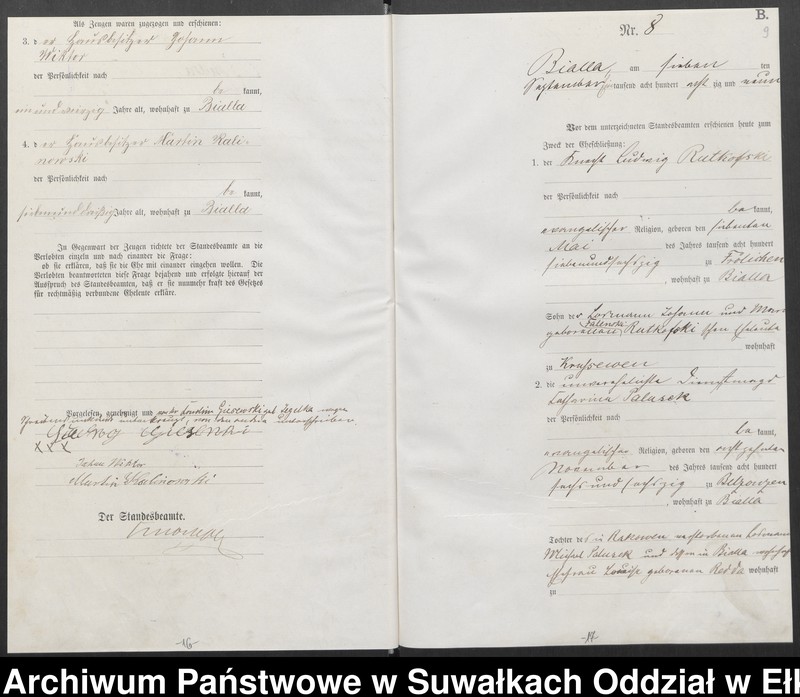 Als Zeugen waren zugezogen und erschienen:
3. d er Hausbesitzer Johann
Wiktor
der Persönlichkeit nach
be kannt,
Jahre alt, wohnhaft zu Bialla
4. d er Hausbesitzer Martin Kali-
nowski
der Persönlichkeit nach
be kannt,
siebenunddreißig Jahre alt, wohnhaft zu Bialla
In Gegenwart der Zeugen richtete der Standesbeamte an die
Verlobten einzeln und nach einander die Frage:
ob sie erklären, daß sie die Ehe mit einander eingehen wollen. Die
Verlobten beantworteten diese Frage bejahend und erfolgte hierauf der
Ausspruch des Standesbeamten, daß er sie nunmehr kraft des Gesetzes
für rechtmäßig verbundene Eheleute erkläre.
Vorgelesen, genehmigt und
XXX
Johann Wiktor
Martin Kalinowski
Der Standesbeamte.
-16-
B.
9
Nr. 8
Bialla, am sieben ten
September tausend acht hundert acht zig und neun
Vor dem unterzeichneten Standesbeamten erschienen heute zum
Zweck der Eheschließung:
1. der Knecht Ludwig Rutkofski
der Persönlichkeit nach
be kannt,
evangelischer Religion, geboren den siebenten
Mai des Jahres tausend acht hundert
siebenundsechszig zu Frölichen
, wohnhaft zu Bialla
Sohn der Losmann Johann und
geborenen Rutkofski schen Eheleute
wohnhaft
zu Krussewen
2. die unverehelichte Dienstmagd
Catharina Palusek
der Persönlichkeit nach
be kannt,
evangelischer Religion, geboren den achtzehnten
November des Jahres tausend acht hundert
sechs und sechszig zu Belzonzen
, wohnhaft zu Bialla
Tochter des in Rakowen verstorbenen Losmann
Michael Palusek und dessen in Bialla
Ehefrau Louise geborenen Redda wohnhaft
zu
-17-
Archiwum Państwowe w Suwałkach Oddział w Eł